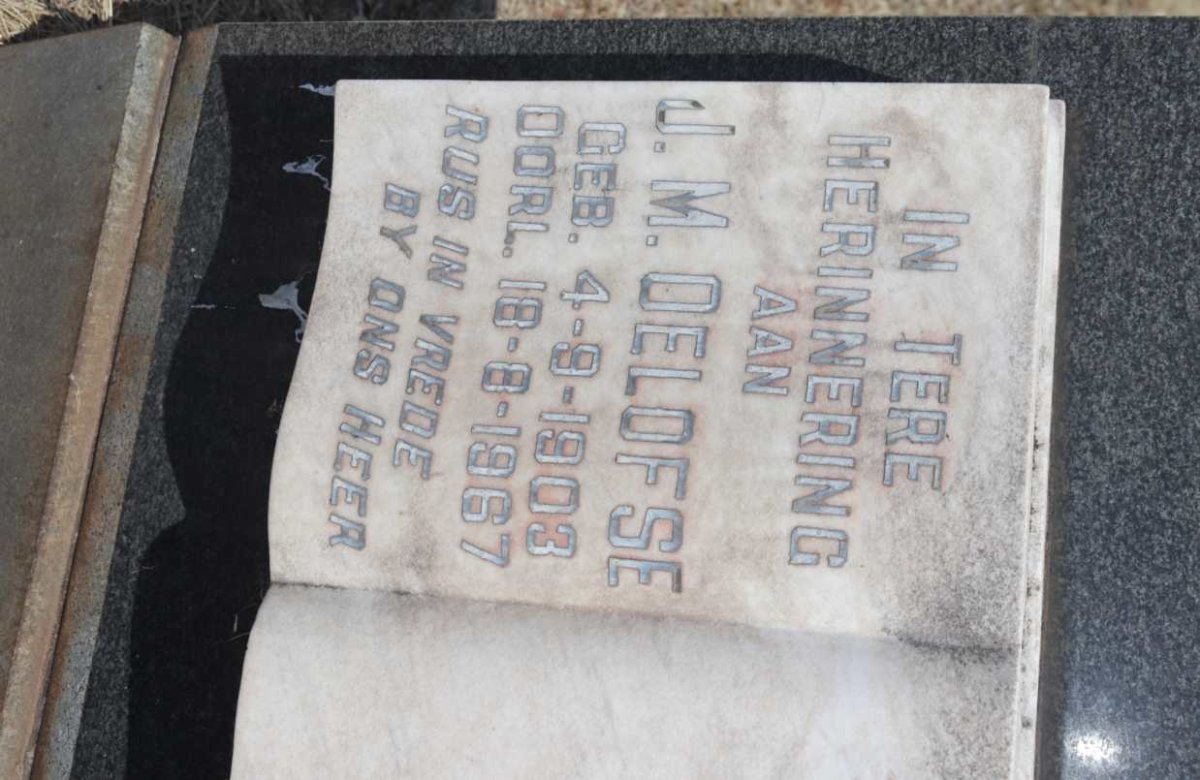 IN TERE
HERINNERING
AAN
J. M. OELOFSE
GEB. 4-9-1903
OORL. 18-8-1967
RUS IN VREDE
BY ONS HEER